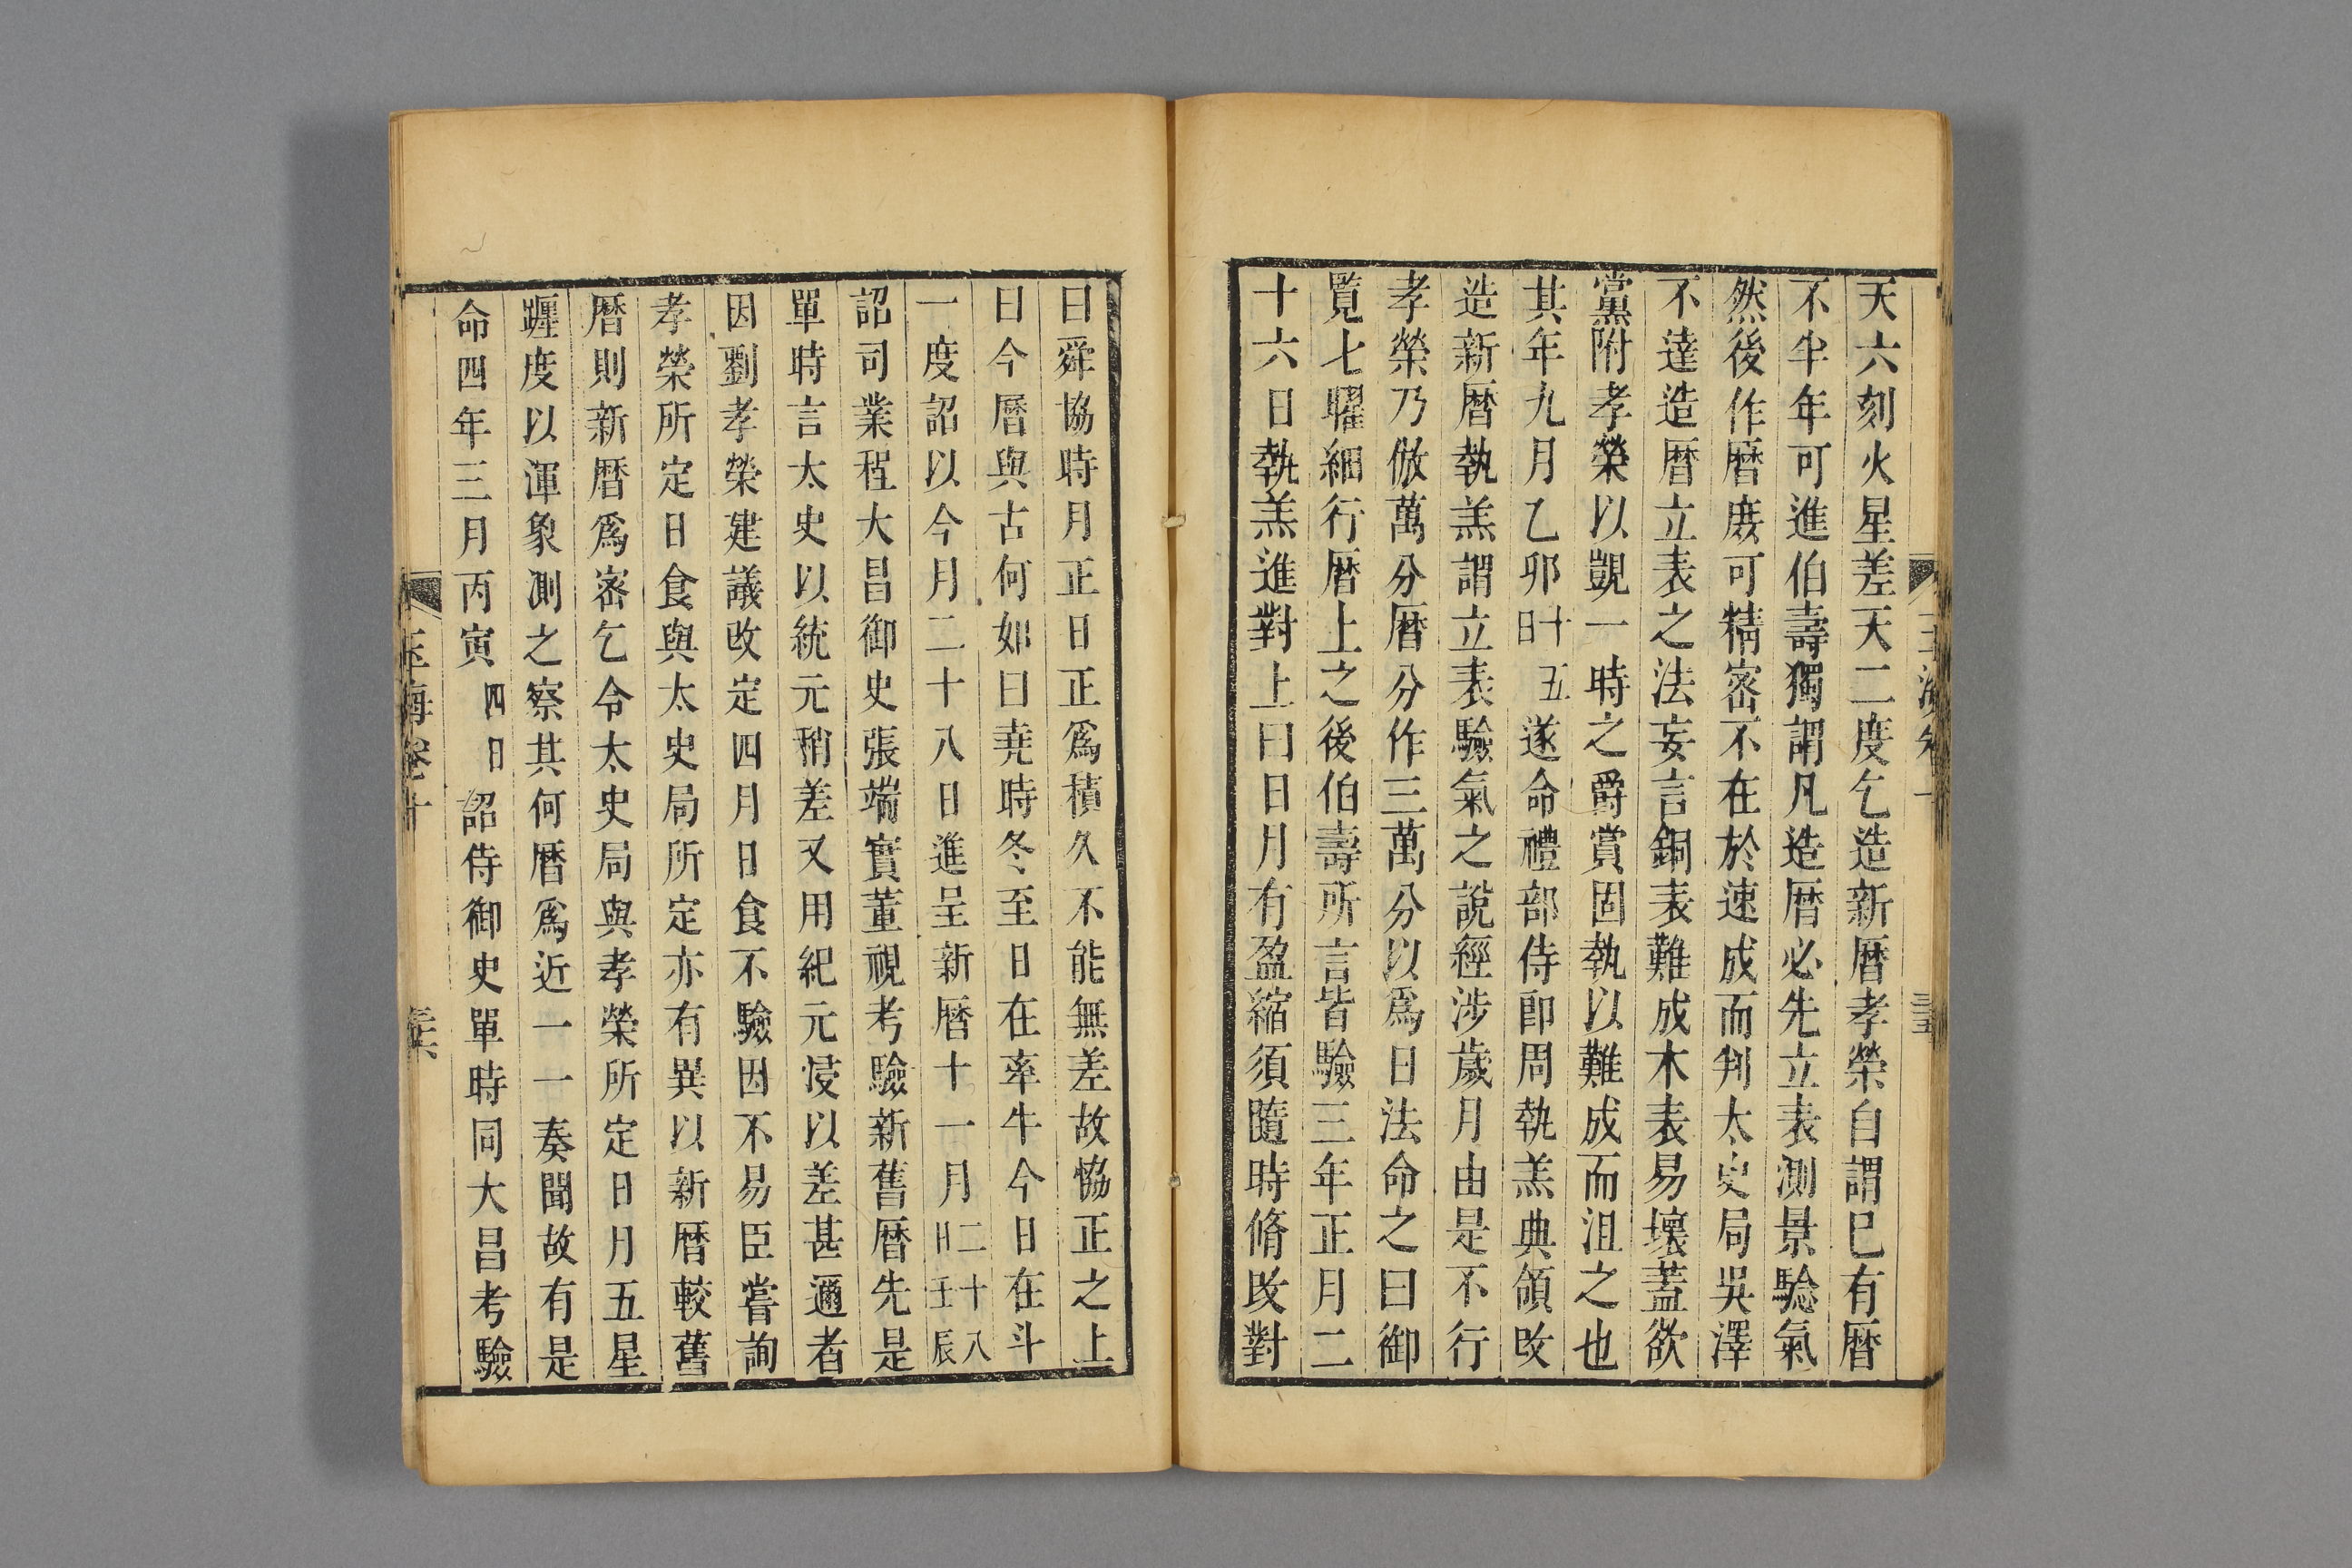 天六刻火星差天二度乞造新曆孝榮自謂已有曆
不半年可進伯壽獨謂凡造曆必先立表測景驗氣
然後作曆庻可精密不在於速成而判太史局吳澤
不達造曆立表之法妄言銅表難成木表易壞蓋欲
黨附孝榮以覬一時之爵賞固執以難成而沮之也
其年九月乙卯十五日遂命禮部侍郎周執羔典領改
造新曆執羔謂立表驗氣之說經涉歲月由是不行
孝榮乃倣萬分曆分作三萬分以爲日法命之曰御
覧七曜細行曆上之後伯壽所言皆驗三年正月二
十六日執羔進對上曰日月有盈縮須隨時脩改對
曰舜協時月正日正爲積久不能無差故恊正之上
曰今曆與古何如曰堯時冬至日在牽牛今日在斗
一度詔以今月二十八日進呈新曆十一月二十八日壬辰
詔司業程大昌御史張端實董視考驗新舊曆先是
單時言太史以統元稍差又用紀元寖以差甚邇者
因劉孝榮建議改定四月日食不驗因不易臣嘗詢
孝榮所定日食與太史局所定亦有異以新曆較舊
曆則新曆爲密乞令太史局與孝榮所定日月五星
躔度以渾象測之察其何曆爲近一一奏聞故有是
命四年三月丙寅四日詔侍御史單時同大昌考驗
玉海卷十